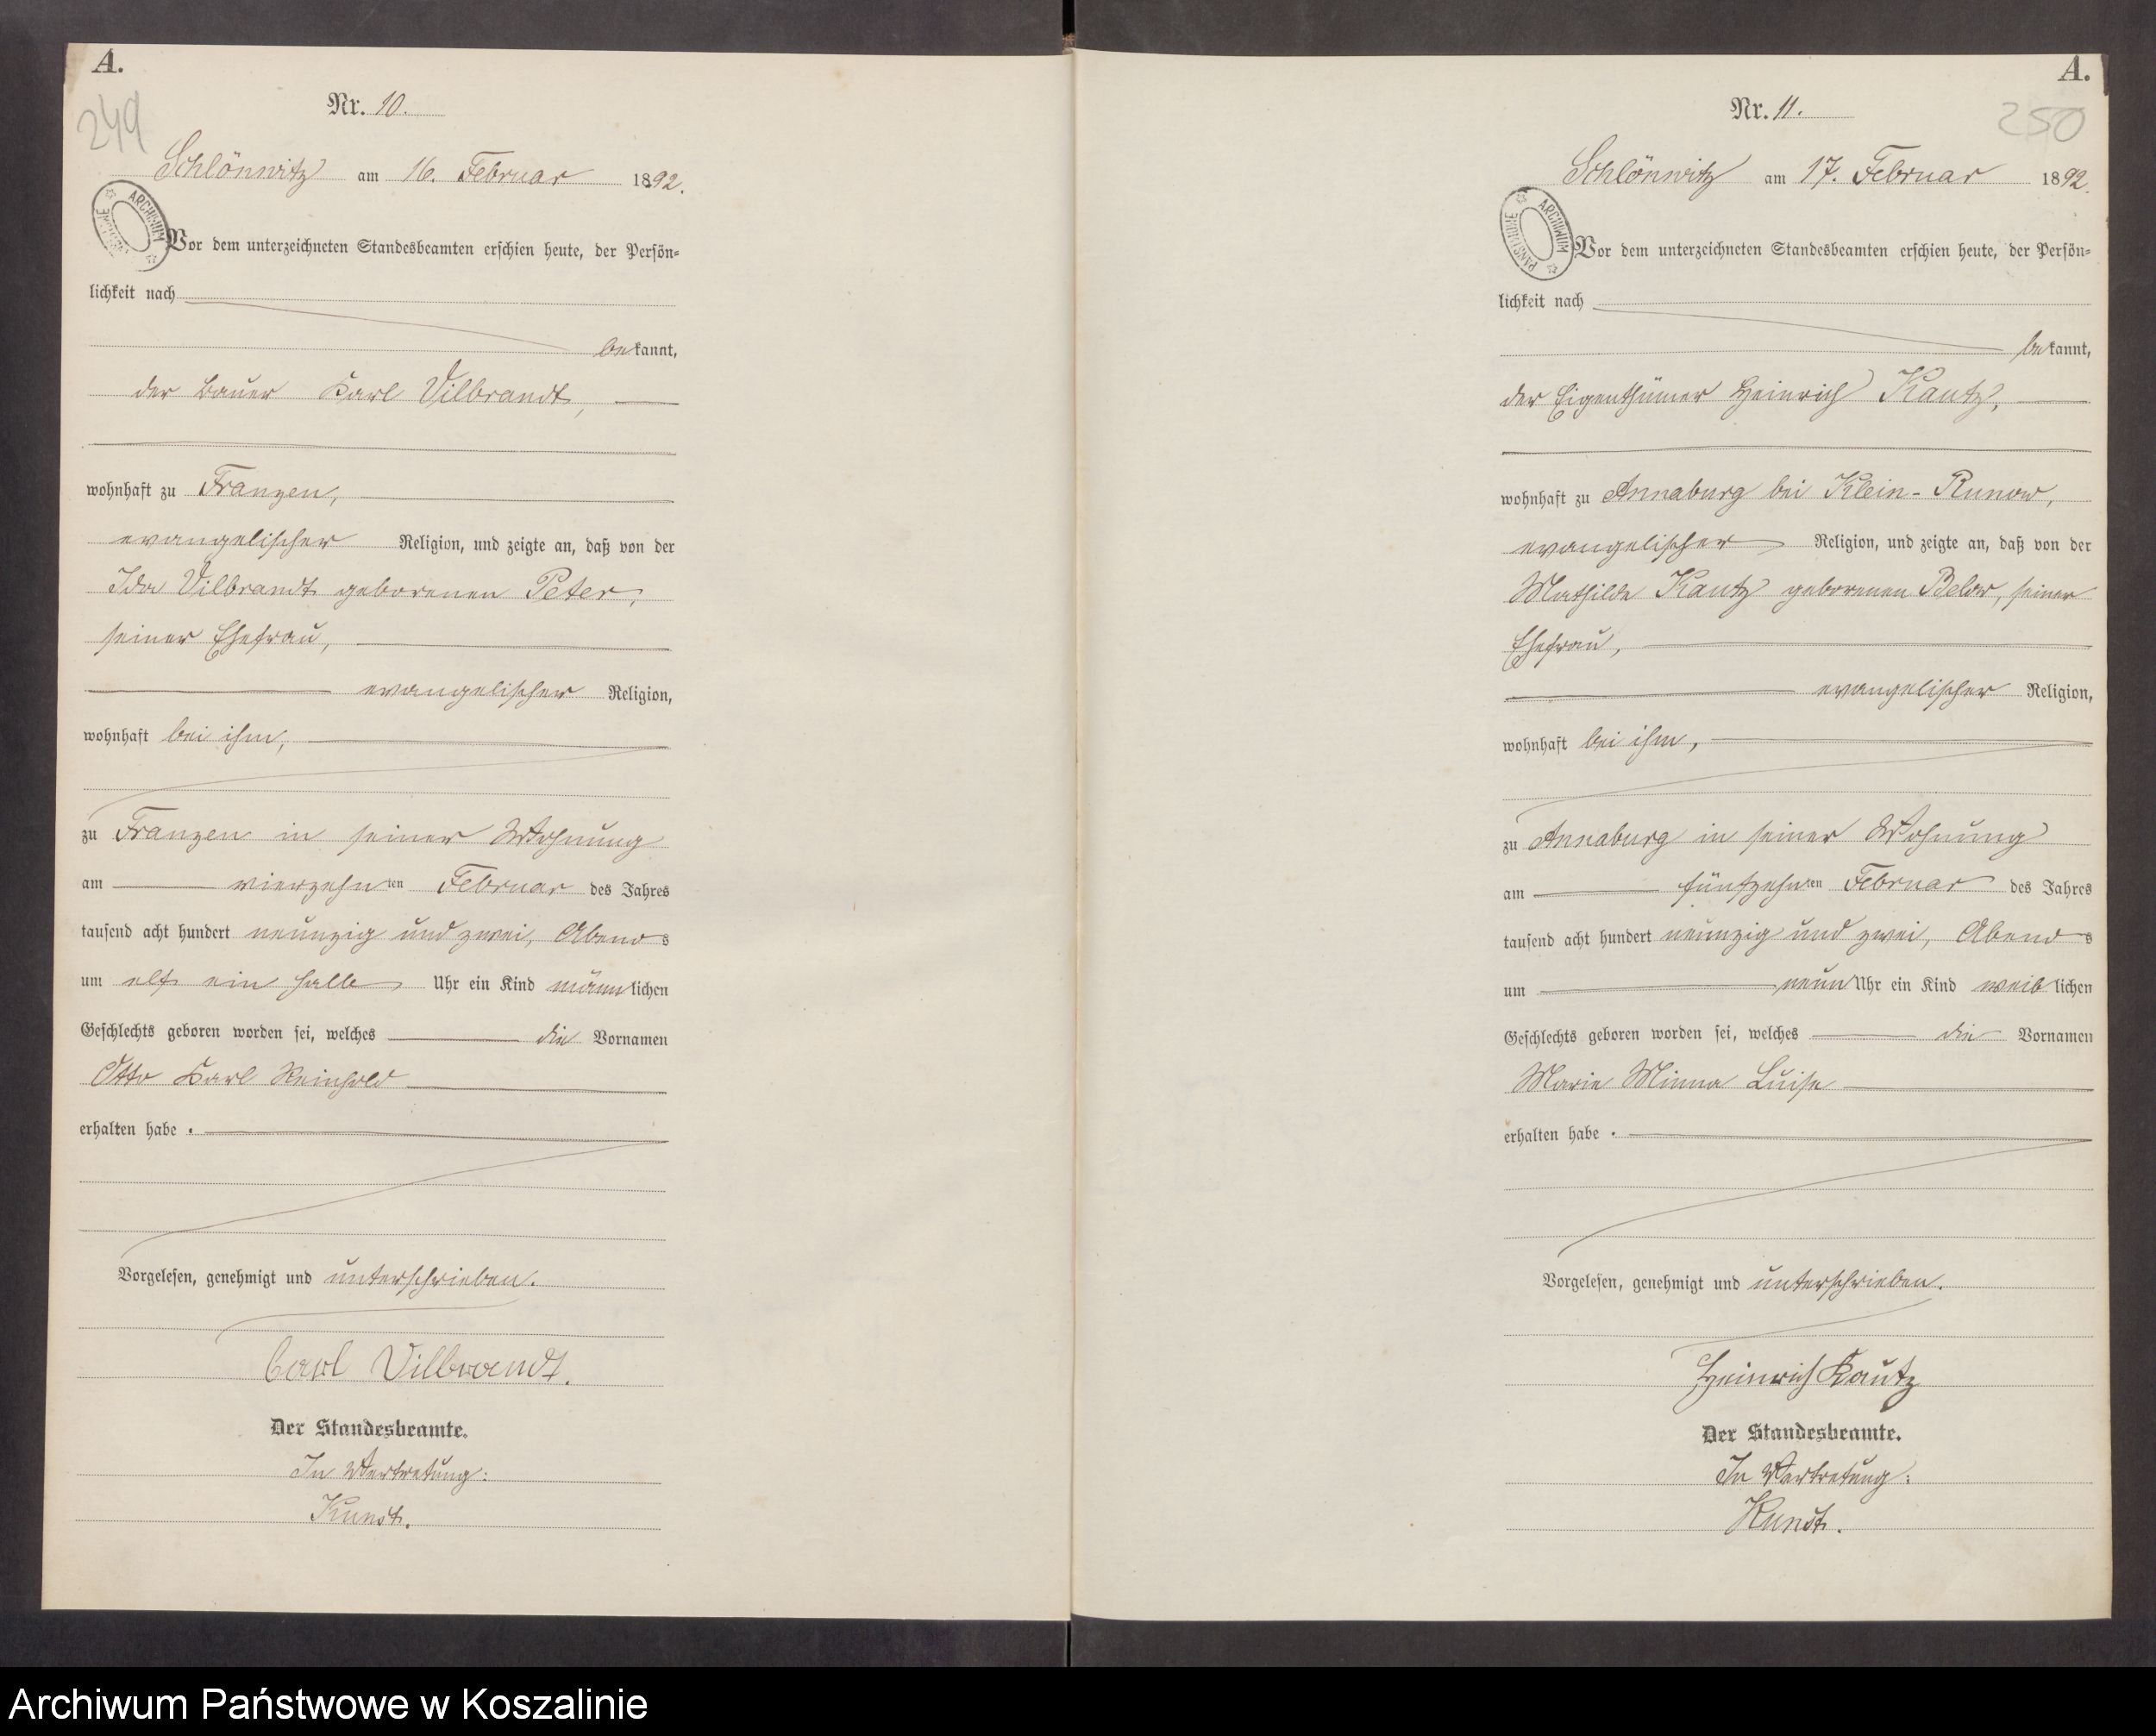 A.
249
Nr. 10.
Schlönwitz am 16. Februar 1892.
ARCHIWUM
Vor dem unterzeichneten Standesbeamten erschien heute, der Persön-
lichkeit nach
bekannt,
der Bauer Karl Vilbrandt,
wohnhaft zu Franzen,
evangelischer Religion, und zeigte an, daß von der
Ida Vilbrandt geborenen Peter,
seiner Ehefrau,
evangelischer Religion,
wohnhaft bei ihm,
zu Franzen in seiner Wohnung
am vierzehnten Februar des Jahres
tausend acht hundert neunzig und zwei, Abends
um elf ein halb Uhr ein Kind männlichen
Geschlechts geboren worden sei, welches die Vornamen
Otto Karl Reinhold
erhalten habe.
Vorgelesen, genehmigt und unterschrieben.
Carl Vilbrandt.
Der Standesbeamte.
In Vertretung:
Kunst.
A.
250
Nr. 11.
Schlönwitz am 17. Februar 1892.
ARCHIWUM PAŃSTWOWE
Vor dem unterzeichneten Standesbeamten erschien heute, der Persön-
lichkeit nach
bekannt,
der Eigenthümer Heinrich Kautz,
wohnhaft zu Annaburg bei Klein-Runow,
evangelischer Religion, und zeigte an, daß von der
Mathilde Kautz geborenen Below, seiner
Ehefrau,
evangelischer Religion,
wohnhaft bei ihm,
zu Annaburg in seiner Wohnung
am fünfzehnten Februar des Jahres
tausend acht hundert neunzig und zwei, Abends
um neun Uhr ein Kind weiblichen
Geschlechts geboren worden sei, welches die Vornamen
Marie Minna Luise
erhalten habe.
Vorgelesen, genehmigt und unterschrieben.
Heinrich Kautz
Der Standesbeamte.
In Vertretung:
Kunst.
Archiwum Państwowe w Koszalinie